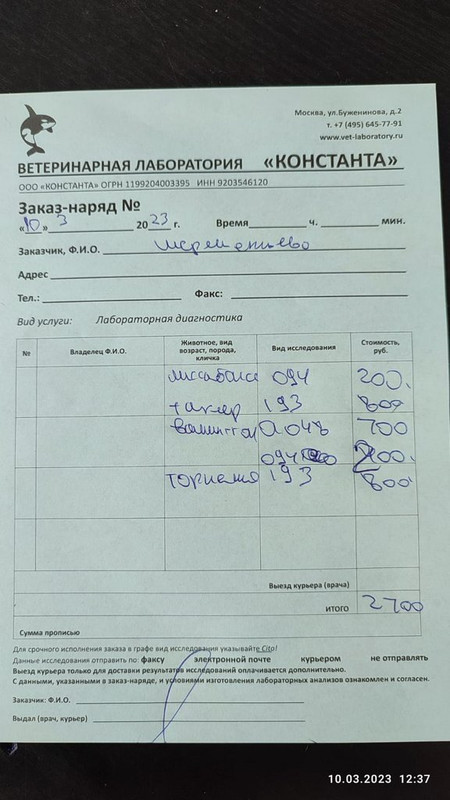 Москва, ул.Буженинова, д.2
т. +7 (495) 645-77-91
www.vet-laboratory.ru
ВЕТЕРИНАРНАЯ ЛАБОРАТОРИЯ «КОНСТАНТА»
ООО «КОНСТАНТА» ОГРН 1199204003395 ИНН 9203546120
Заказ-наряд №
«10» 3 2023 г. Время ч. мин.
Заказчик, Ф.И.О.
Адрес
Тел.: Факс:
Вид услуги: Лабораторная диагностика
№ Владелец Ф.И.О. Животное, вид возраст, порода, кличка Вид исследования Стоимость, руб.
094 200.
такер 193 800
а048 700
094 200.
193 800
Выезд курьера (врача)
ИТОГО 2700
Сумма прописью
Для срочного исполнения заказа в графе вид исследования указывайте Cito!
Данные исследования отправить по: факсу электронной почте курьером не отправлять
Выезд курьера только для доставки результатов исследований оплачивается дополнительно.
С данными, указанными в заказ-наряде, и условиями изготовления лабораторных анализов ознакомлен и согласен.
Заказчик: Ф.И.О.
Выдал (врач, курьер)
10.03.2023 12:37